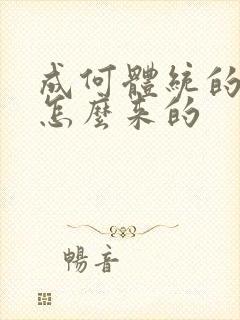 成何體統的
怎麼來的
暢音